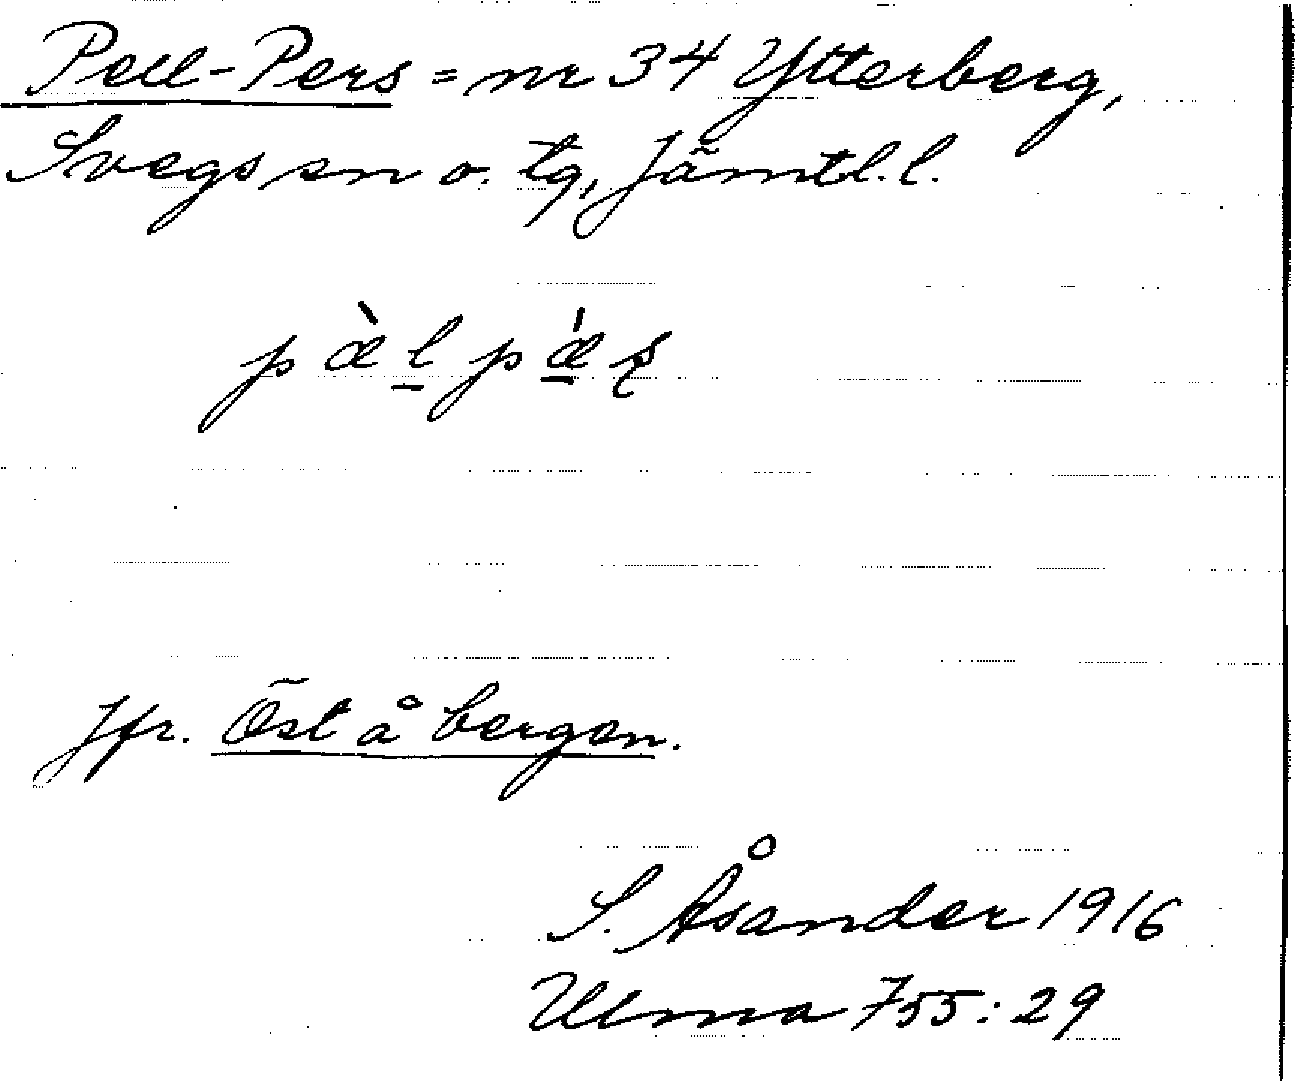 Pell-Pers = nr 34 Ytterberg,
Svegs sn o. tg, Jämtl. l.
pæ̀l̠ pǽ̠ʂ
Jfr. Öst å bergen.
S. Åsander 1916
Ulma 755:29